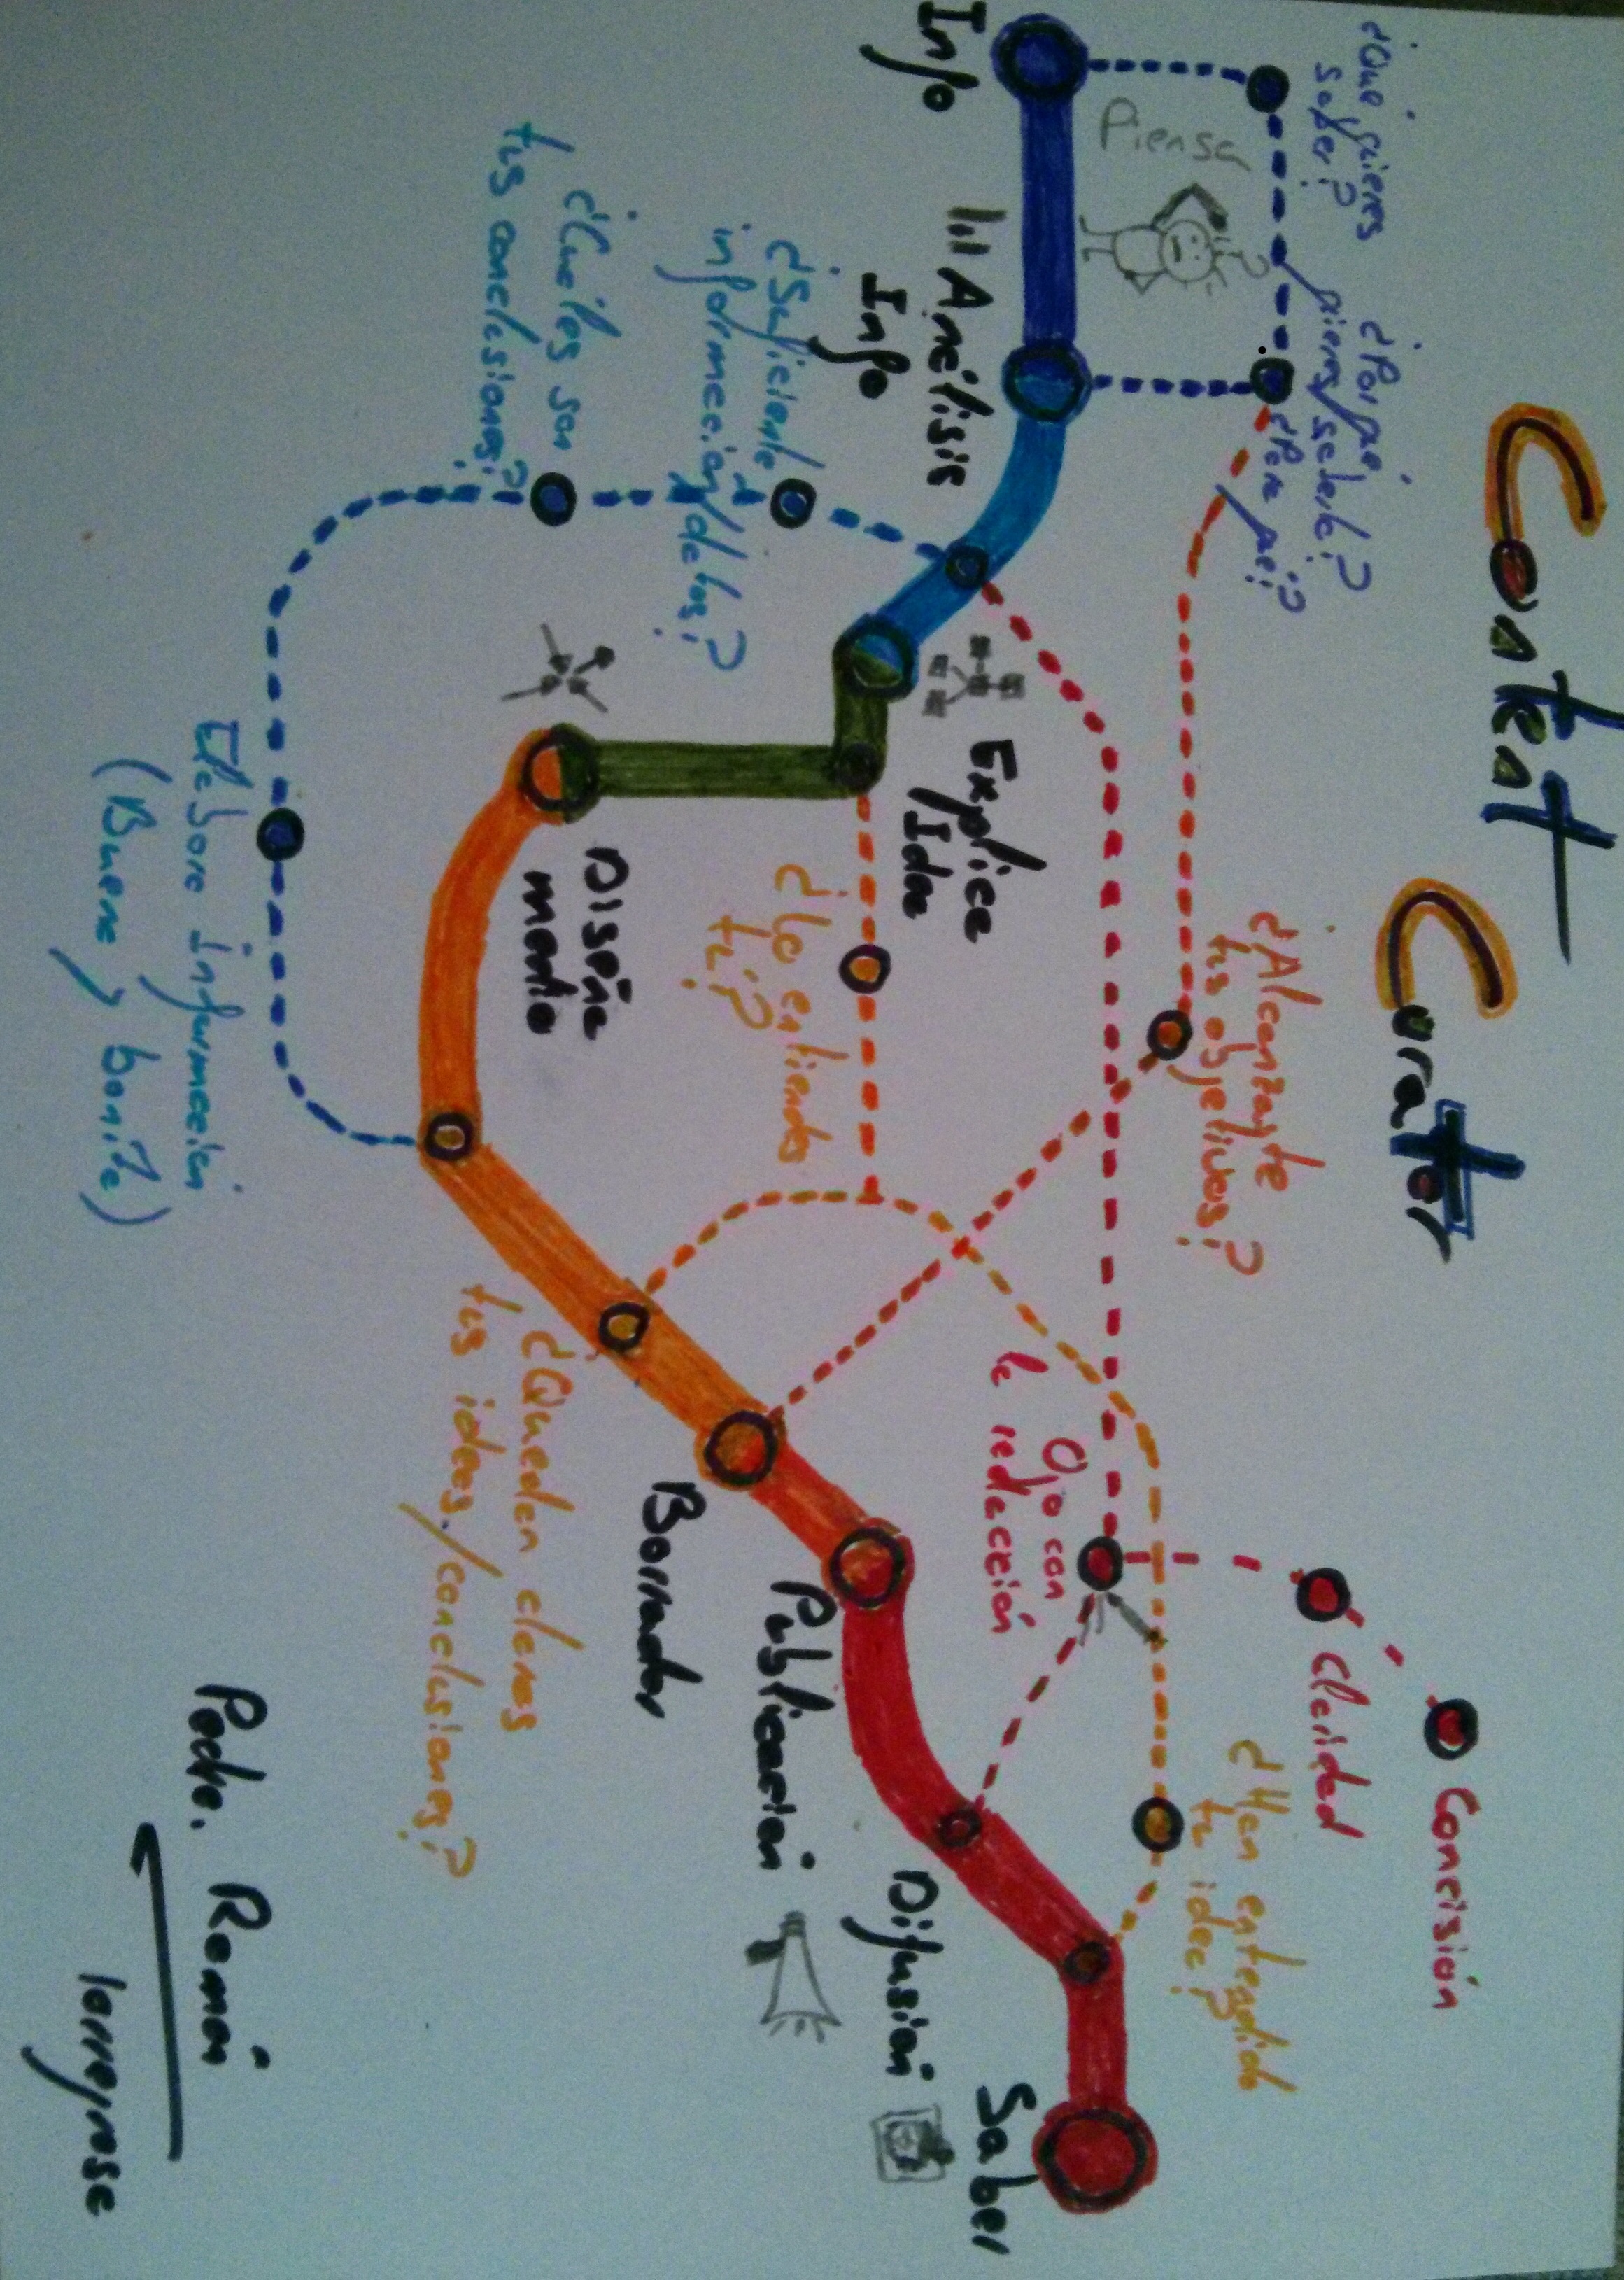 Content
Curator
¿Qué quieres
saber?
¿Por qué
quieres saberlo?
¿Para qué?
Piensa
Info
Análisis
Info
¿Suficiente
información/datos?
¿Cuáles son
tus conclusiones?
Explica
Idea
Diseña
medio
Elabora información
(Buena y bonita)
¿Lo entiendes
tú?
¿Alcanzaste
tus objetivos?
¿Quedan claras
tus ideas/conclusiones?
Borrador
Publicación
Ojo con
la redacción
Claridad
Concisión
¿Han entendido
tu idea?
Difusión
Saber
Pedro. Román